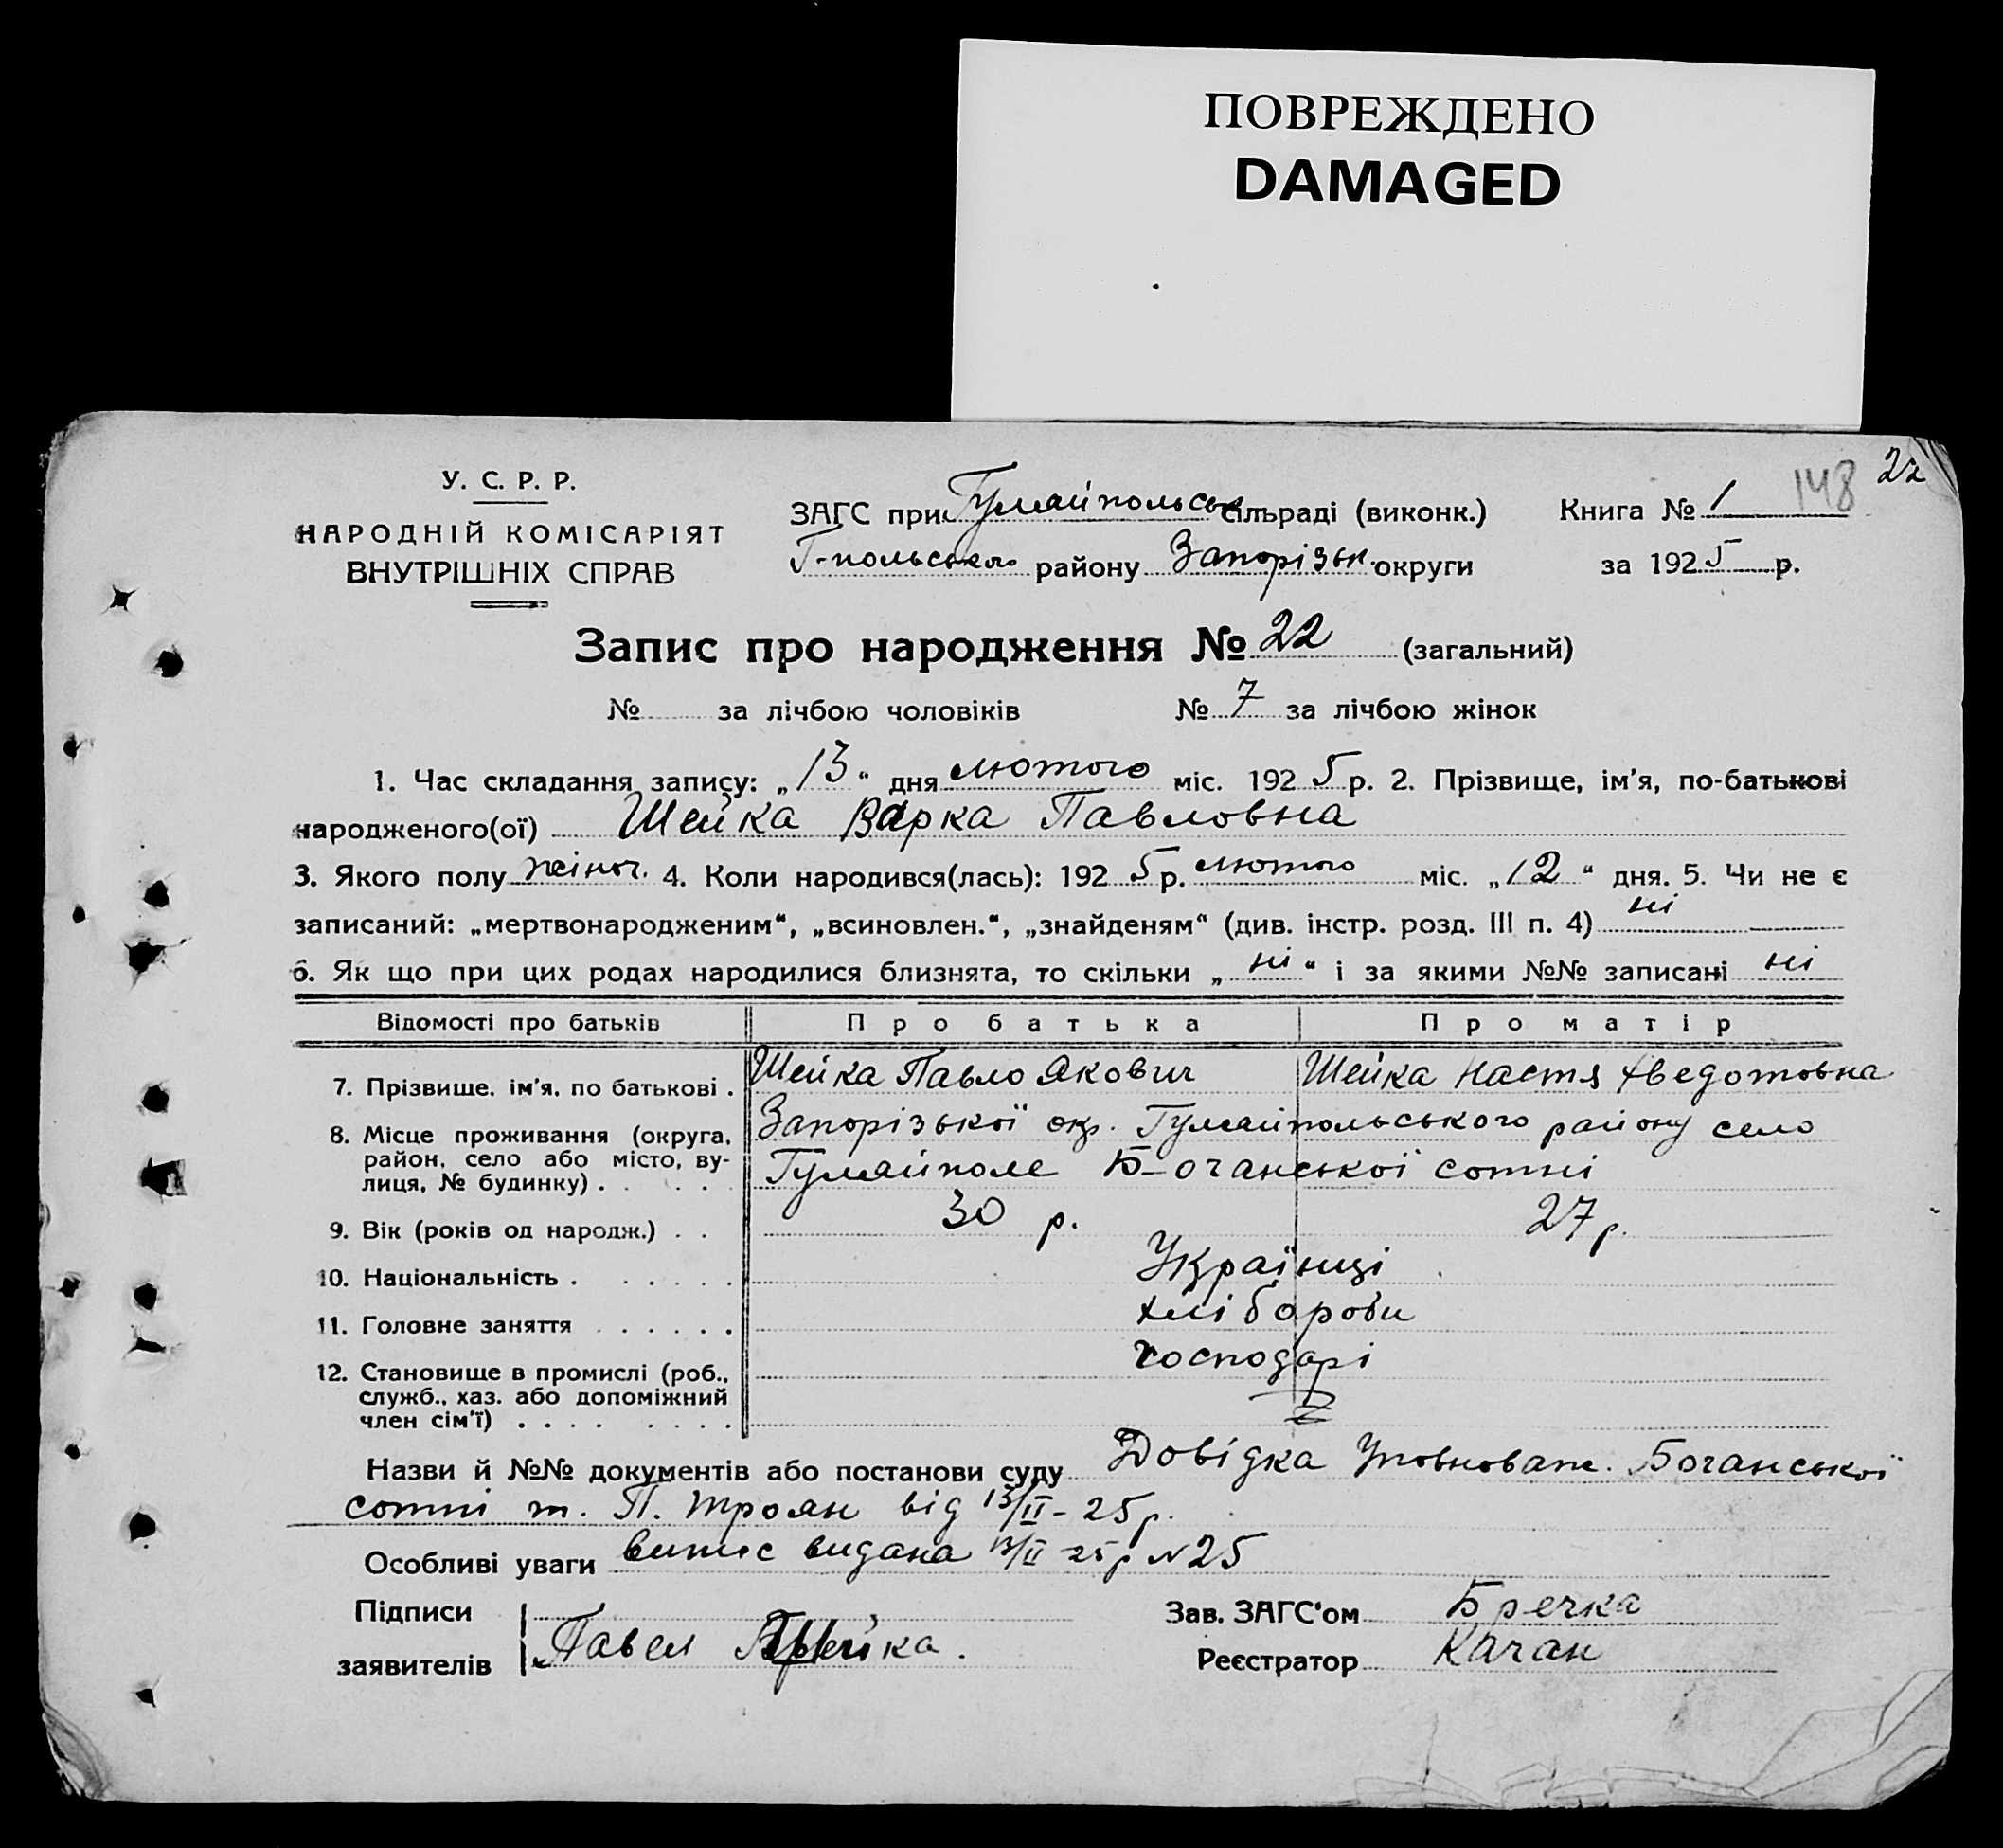 ПОВРЕЖДЕНО
DAMAGED
22
148
У. С. Р. Р.
НАРОДНІЙ КОМІСАРІЯТ
ВНУТРІШНІХ СПРАВ
ЗАГС при Гуляйпольськ сільраді (виконк.) Книга № 1
Г-польського району Запорізьк. округи за 1925 р.
Запис про народження № 22 (загальний)
№ за лічбою чоловіків № 7 за лічбою жінок
1. Час складання запису: „13“ дня лютого міс. 1925 р. 2. Прізвище, ім'я, по-батькові
народженого(ої) Шейка Варка Павловна
3. Якого полу жіноч. 4. Коли народився(лась): 1925 р. лютого міс. „12“ дня. 5. Чи не є
записаний: „мертвонародженим“, „всиновлен.“, „знайденям“ (див. інстр. розд. III п. 4) ні
6. Як що при цих родах народилися близнята, то скільки „ні“ і за якими №№ записані ні
Відомості про батьків Про батька Про матір
7. Прізвище, ім'я, по батькові . Шейка Павло Якович Шейка Настя Хведотовна
8. Місце проживання (округа, район, село або місто, вулиця, № будинку) . Запорізької окр. Гуляйпольського району село
Гуляйполе Б-очанської сотні
9. Вік (років од народж.) . . 30 р. 27 р.
10. Національність . Українці
11. Головне заняття Хлібороби
12. Становище в промислі (роб., служб., хаз. або допоміжний член сім'ї) господарі
Назви й №№ документів або постанови суду Довідка Уповноваж. Бочанської
сотні т. П. Троян від 13/II-25 р.
Особливі уваги витяг видана 13/II 25 р №25
Підписи Зав. ЗАГС'ом Бречка
заявителів Павел Шейка. Реєстратор Качан